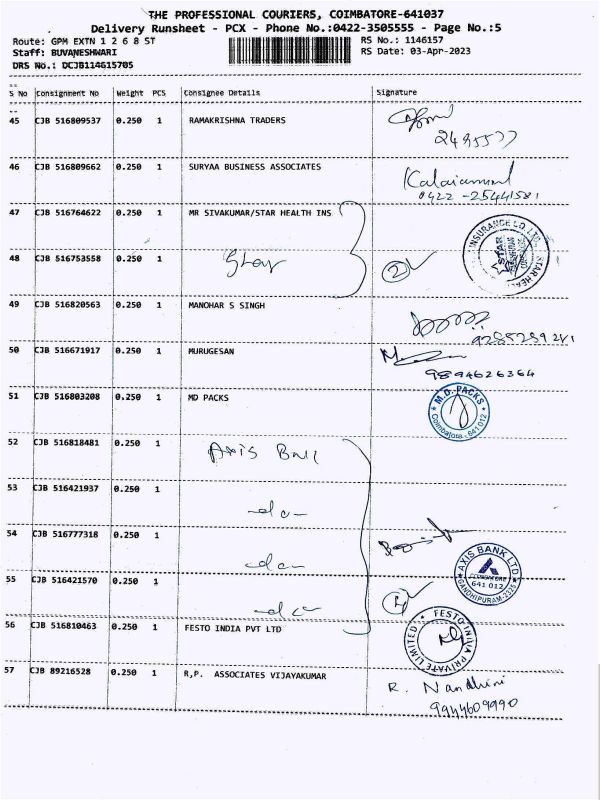 THE PROFESSIONAL COURIERS, COIMBATORE-641037
Delivery Runsheet - PCX - Phone No.:0422-3505555 - Page No.:5
Route: GPM EXTN 1 2 6 8 ST RS No.: 1146157
Staff: BUVANESHWARI RS Date: 03-Apr-2023
DRS No.: DCJB114615705
S No Consignment No Weight PCS Consignee Details Signature
45 CJB 516809537 0.250 1 RAMAKRISHNA TRADERS
2495577
46 CJB 516809662 0.250 1 SURYAA BUSINESS ASSOCIATES
0422-25441581
47 CJB 516764622 0.250 1 MR SIVAKUMAR/STAR HEALTH INS
48 CJB 516753558 0.250 1 Star 2
INSURANCE CO. LTD. STAR HEAL
STAR
49 CJB 516820563 0.250 1 MANOHAR S SINGH
50 CJB 516671917 0.250 1 MURUGESAN
9894626364
51 CJB 516803208 0.250 1 MD PACKS
M.D. PACKS
Coimbatore - 641 012
52 CJB 516818481 0.250 1 Axis Ban
53 CJB 516421937 0.250 1 -do-
54 CJB 516777318 0.250 1 -do-
AXIS BANK LTD
COIMBATORE
641 012
GANDHIPURAM-2325
55 CJB 516421570 0.250 1 -do- 4
56 CJB 516810463 0.250 1 FESTO INDIA PVT LTD
FESTO INDIA PRIVATE LIMITED
57 CJB 89216528 0.250 1 R,P. ASSOCIATES VIJAYAKUMAR
R. Nandhini
9944609990